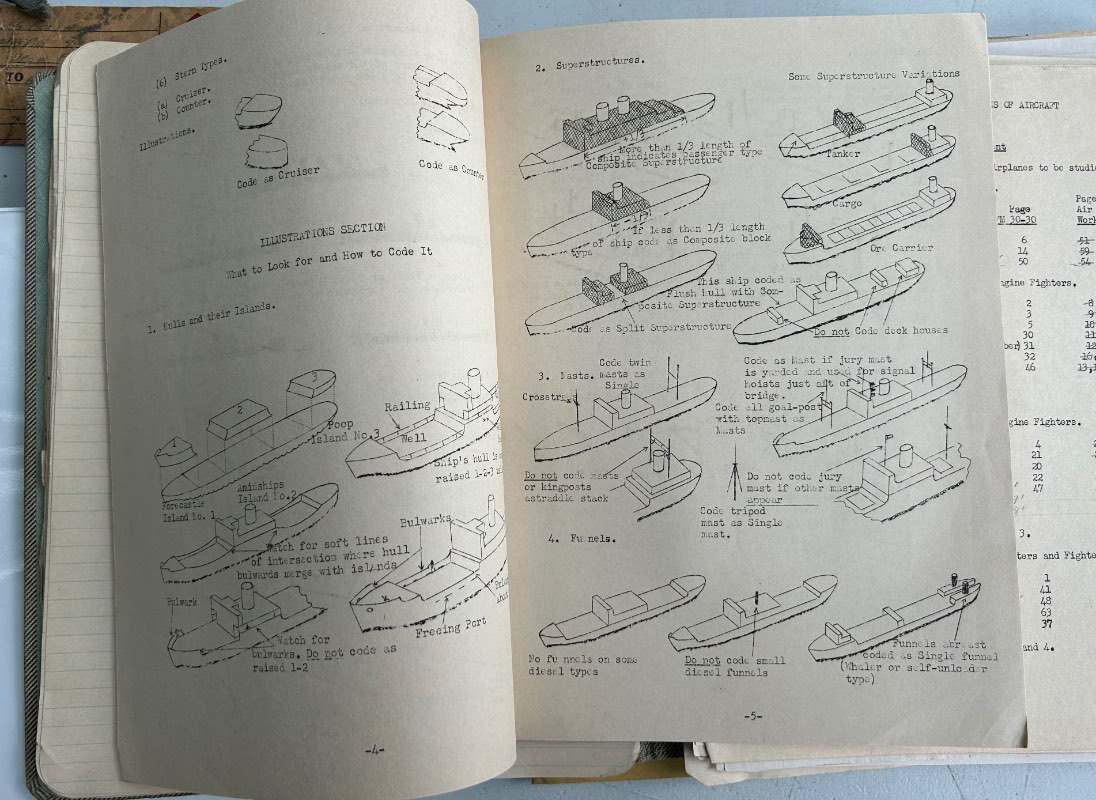 TO
(6) Stern Types.
(a) Cruiser.
(b) Counter.
Illustrations.
Code as Cruiser
Code as Counter
ILLUSTRATIONS SECTION
What to Look for and How to Code It
1. Hulls and their Islands.
1
2
3
Poop
Island No.3
Amidships
Island No.2
Forecastle
Island No. 1
Railing
Well
Ship's hull is
raised 1-2-3
Watch for soft lines
of intersection where hull
bulwards merge with islands
Bulwarks
Freeing Port
Bulwark
Watch for
bulwarks. Do not code as
raised 1-2
-4-
2. Superstructures.
Some Superstructure Variations
More than 1/3 length of
ship indicates passenger type
Composite Superstructure
Tanker
If less than 1/3 length
of ship code as Composite block
type
Cargo
Ore Carrier
Code as Split Superstructure
This ship coded as
Flush hull with Com-
posite Superstructure
Do not Code deck houses
3. Masts.
Code twin
masts as
Single
Crosstrees
Code as Mast if jury mast
is yarded and used for signal
hoists just aft of
bridge.
Code all goal-post
with topmast as
Masts
Do not code masts
or kingposts
astraddle stack
Code tripod
mast as Single
mast.
Do not code jury
mast if other masts
appear
4. Funnels.
No funnels on some
diesel types
Do not code small
diesel funnels
Funnels abreast
coded as Single funnel
(Whaler or self-unloader
type)
-5-
S OF AIRCRAFT
nt
irplanes to be studie
Page
FM 30-30
Page
Air
Work
6 51
14 59
50 54
ngine Fighters.
2 8
3 9
5 10
30 11
ber) 31 12
32 16
46 13,1
gine Fighters.
4
21
20
22
47
3.
ters and Fighte
1
41
48
63
37
and 4.